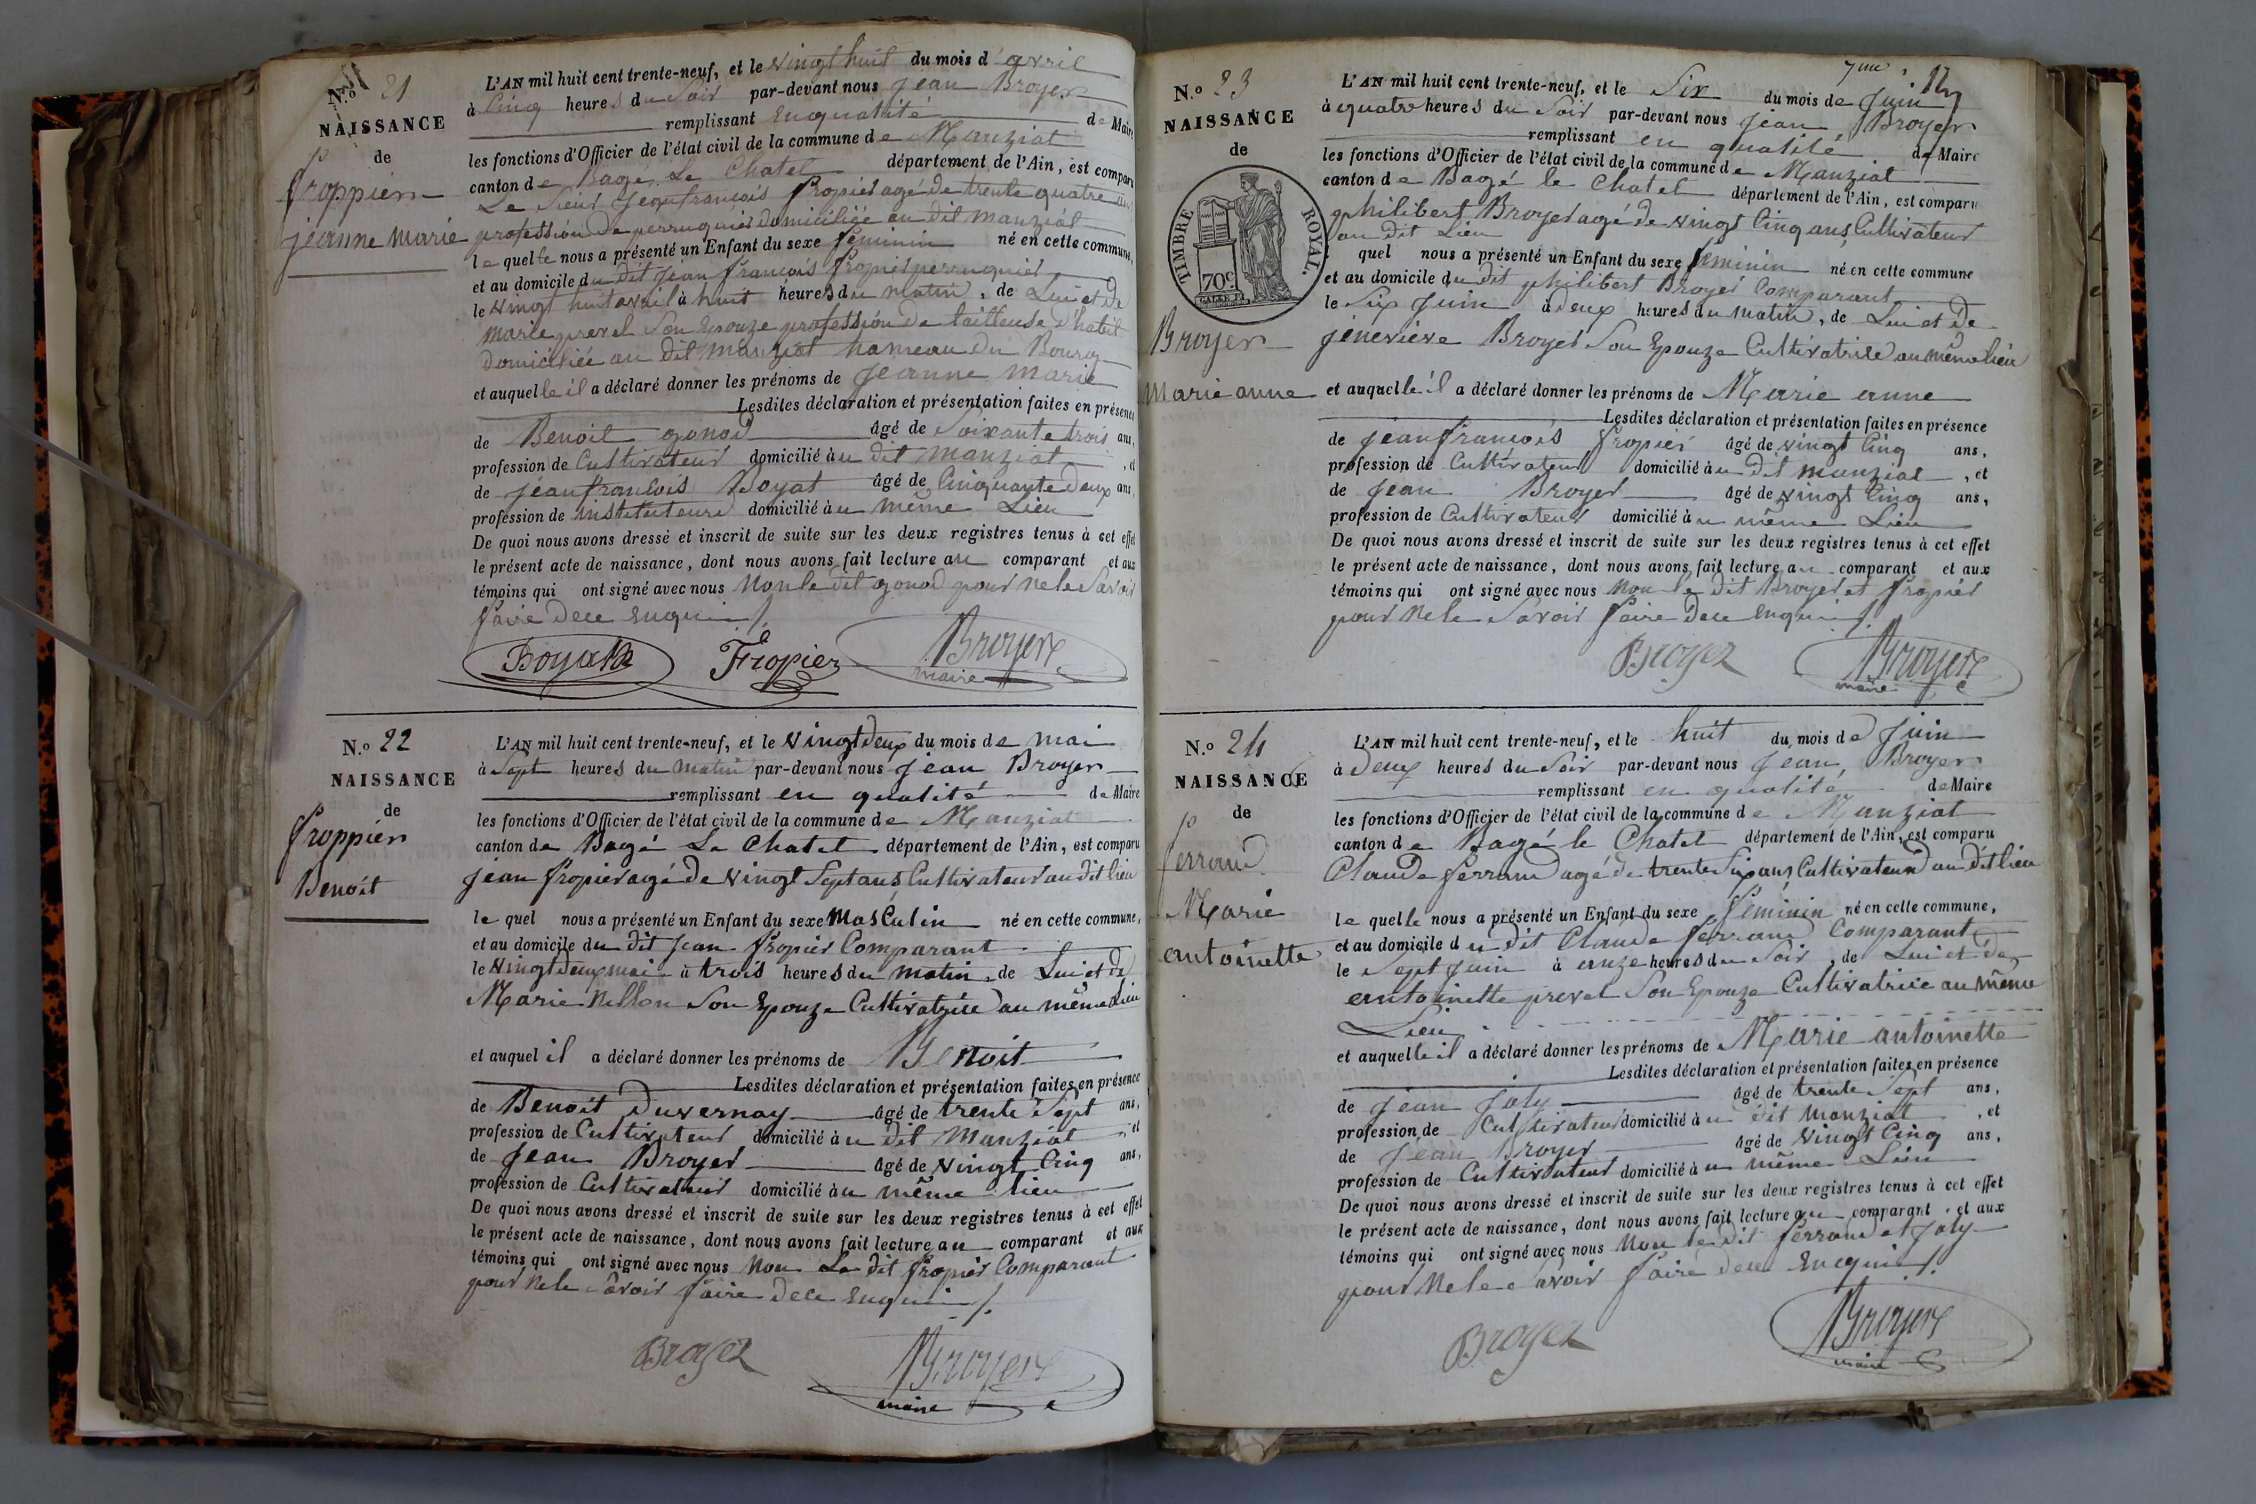 N.o 21
NAISSANCE
de
froppier
jeanne marie
L'AN mil huit cent trente-neuf, et le vingt huit du mois d'avril
à Cinq heures du Soir par-devant nous jean Broyer
remplissant en qualité de Maire
les fonctions d'Officier de l'état civil de la commune de Manziat
canton de Bagé Le Chatel département de l'Ain, est comparu
Le Sieur jean francois fropier agé de trente quatre ans
profession de perruquier domicilié au dit manziat
lequelle nous a présenté un Enfant du sexe féminin né en cette commune,
et au domicile du dit jean francois fropier perruquier
le vingt huit avril à huit heures du matin, de Lui et de
marie prevel Son Epouze profession de tailleuse d'habit
domiciliée au dit manziat hameau du Bourg
et auquelle il a déclaré donner les prénoms de jeanne marie
Lesdites déclaration et présentation faites en présence
de Benoit gonod âgé de Soixante trois ans,
profession de Cultivateur domicilié au dit manziat, et
de jean francois Boyat âgé de Cinquante deux ans,
profession de instituteur domicilié au même Lieu
De quoi nous avons dressé et inscrit de suite sur les deux registres tenus à cet effet
le présent acte de naissance, dont nous avons fait lecture au comparant et aux
témoins qui ont signé avec nous Non le dit gonod pour ne le Savoir
faire dece enquis /.
Boyat Fropier Broyer
maire
N.o 22
NAISSANCE
de
froppier
Benoit
L'AN mil huit cent trente-neuf, et le vingt deux du mois de mai
à Sept heures du matin par-devant nous jean Broyer
remplissant en qualité de Maire
les fonctions d'Officier de l'état civil de la commune de Manziat
canton de Bagé Le Chatel département de l'Ain, est comparu
jean fropier agé de vingt Sept ans Cultivateur au dit lieu
le quel nous a présenté un Enfant du sexe masculin né en cette commune,
et au domicile du dit jean fropier Comparant
le vingt deux mai à trois heures du matin, de Lui et de
Marie Nillon Son Epouze Cultivatrice au même Lieu
et auquel il a déclaré donner les prénoms de Benoit
Lesdites déclaration et présentation faites en présence
de Benoit Duvernay âgé de trente Sept ans,
profession de Cultivateur domicilié au dit Manziat, et
de jean Broyer âgé de vingt Cinq ans,
profession de Cultivateur domicilié au même lieu
De quoi nous avons dressé et inscrit de suite sur les deux registres tenus à cet effet
le présent acte de naissance, dont nous avons fait lecture au comparant et aux
témoins qui ont signé avec nous Non Le dit fropier Comparant
pour ne le Savoir faire dece enquis /.
Broyer Broyer
maire
7me
N.o 23
NAISSANCE
de
TIMBRE ROYAL.
70c
Broyer
Marie anne
L'AN mil huit cent trente-neuf, et le Six du mois de juin
à quatre heures du Soir par-devant nous jean Broyer
remplissant en qualité de Maire
les fonctions d'Officier de l'état civil de la commune de Manziat
canton de Bagé le Chatel département de l'Ain, est comparu
philibert Broyer agé de vingt Cinq ans, Cultivateur
au dit Lieu
quel nous a présenté un Enfant du sexe féminin né en cette commune
et au domicile du dit philibert Broyer Comparant
le Six juin à deux heures du matin, de Lui et de
jenevieve Broyer Son Epouze Cultivatrice au même lieu
et auquelle il a déclaré donner les prénoms de Marie anne
Lesdites déclaration et présentation faites en présence
de jean francois fropier âgé de vingt Cinq ans,
profession de Cultivateur domicilié au dit manziat, et
de jean Broyer âgé de vingt Cinq ans,
profession de Cultivateur domicilié au même Lieu
De quoi nous avons dressé et inscrit de suite sur les deux registres tenus à cet effet
le présent acte de naissance, dont nous avons fait lecture au comparant et aux
témoins qui ont signé avec nous Non le dit Broyer et fropier
pour ne le Savoir faire dece enquis /.
Broyer Broyer
maire
N.o 24
NAISSANCE
de
ferrand
Marie
antoinette
L'AN mil huit cent trente-neuf, et le huit du mois de juin
à deux heures du Soir par-devant nous jean Broyer
remplissant en qualité de Maire
les fonctions d'Officier de l'état civil de la commune de Manziat
canton de Bagé le Chatel département de l'Ain, est comparu
Claude ferrand agé de trente Six ans Cultivateur au dit lieu
le quelle nous a présenté un Enfant du sexe féminin né en cette commune,
et au domicile du dit Claude ferrand Comparant
le Sept juin à onze heures du Soir, de Lui et de
antoinette prevel Son Epouze Cultivatrice au même
Lieu
et auquelle il a déclaré donner les prénoms de Marie antoinette
Lesdites déclaration et présentation faites en présence
de jean joly âgé de trente Sept ans,
profession de Cultivateur domicilié au dit manziat, et
de jean Broyer âgé de vingt Cinq ans,
profession de Cultivateur domicilié au même Lieu
De quoi nous avons dressé et inscrit de suite sur les deux registres tenus à cet effet
le présent acte de naissance, dont nous avons fait lecture au comparant et aux
témoins qui ont signé avec nous Non le dit ferrand et joly
pour ne le Savoir faire dece enquis /.
Broyer Broyer
maire